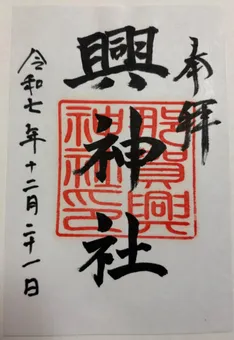 奉拝
興神社
那賀興神社印
令和七年十二月二十一日